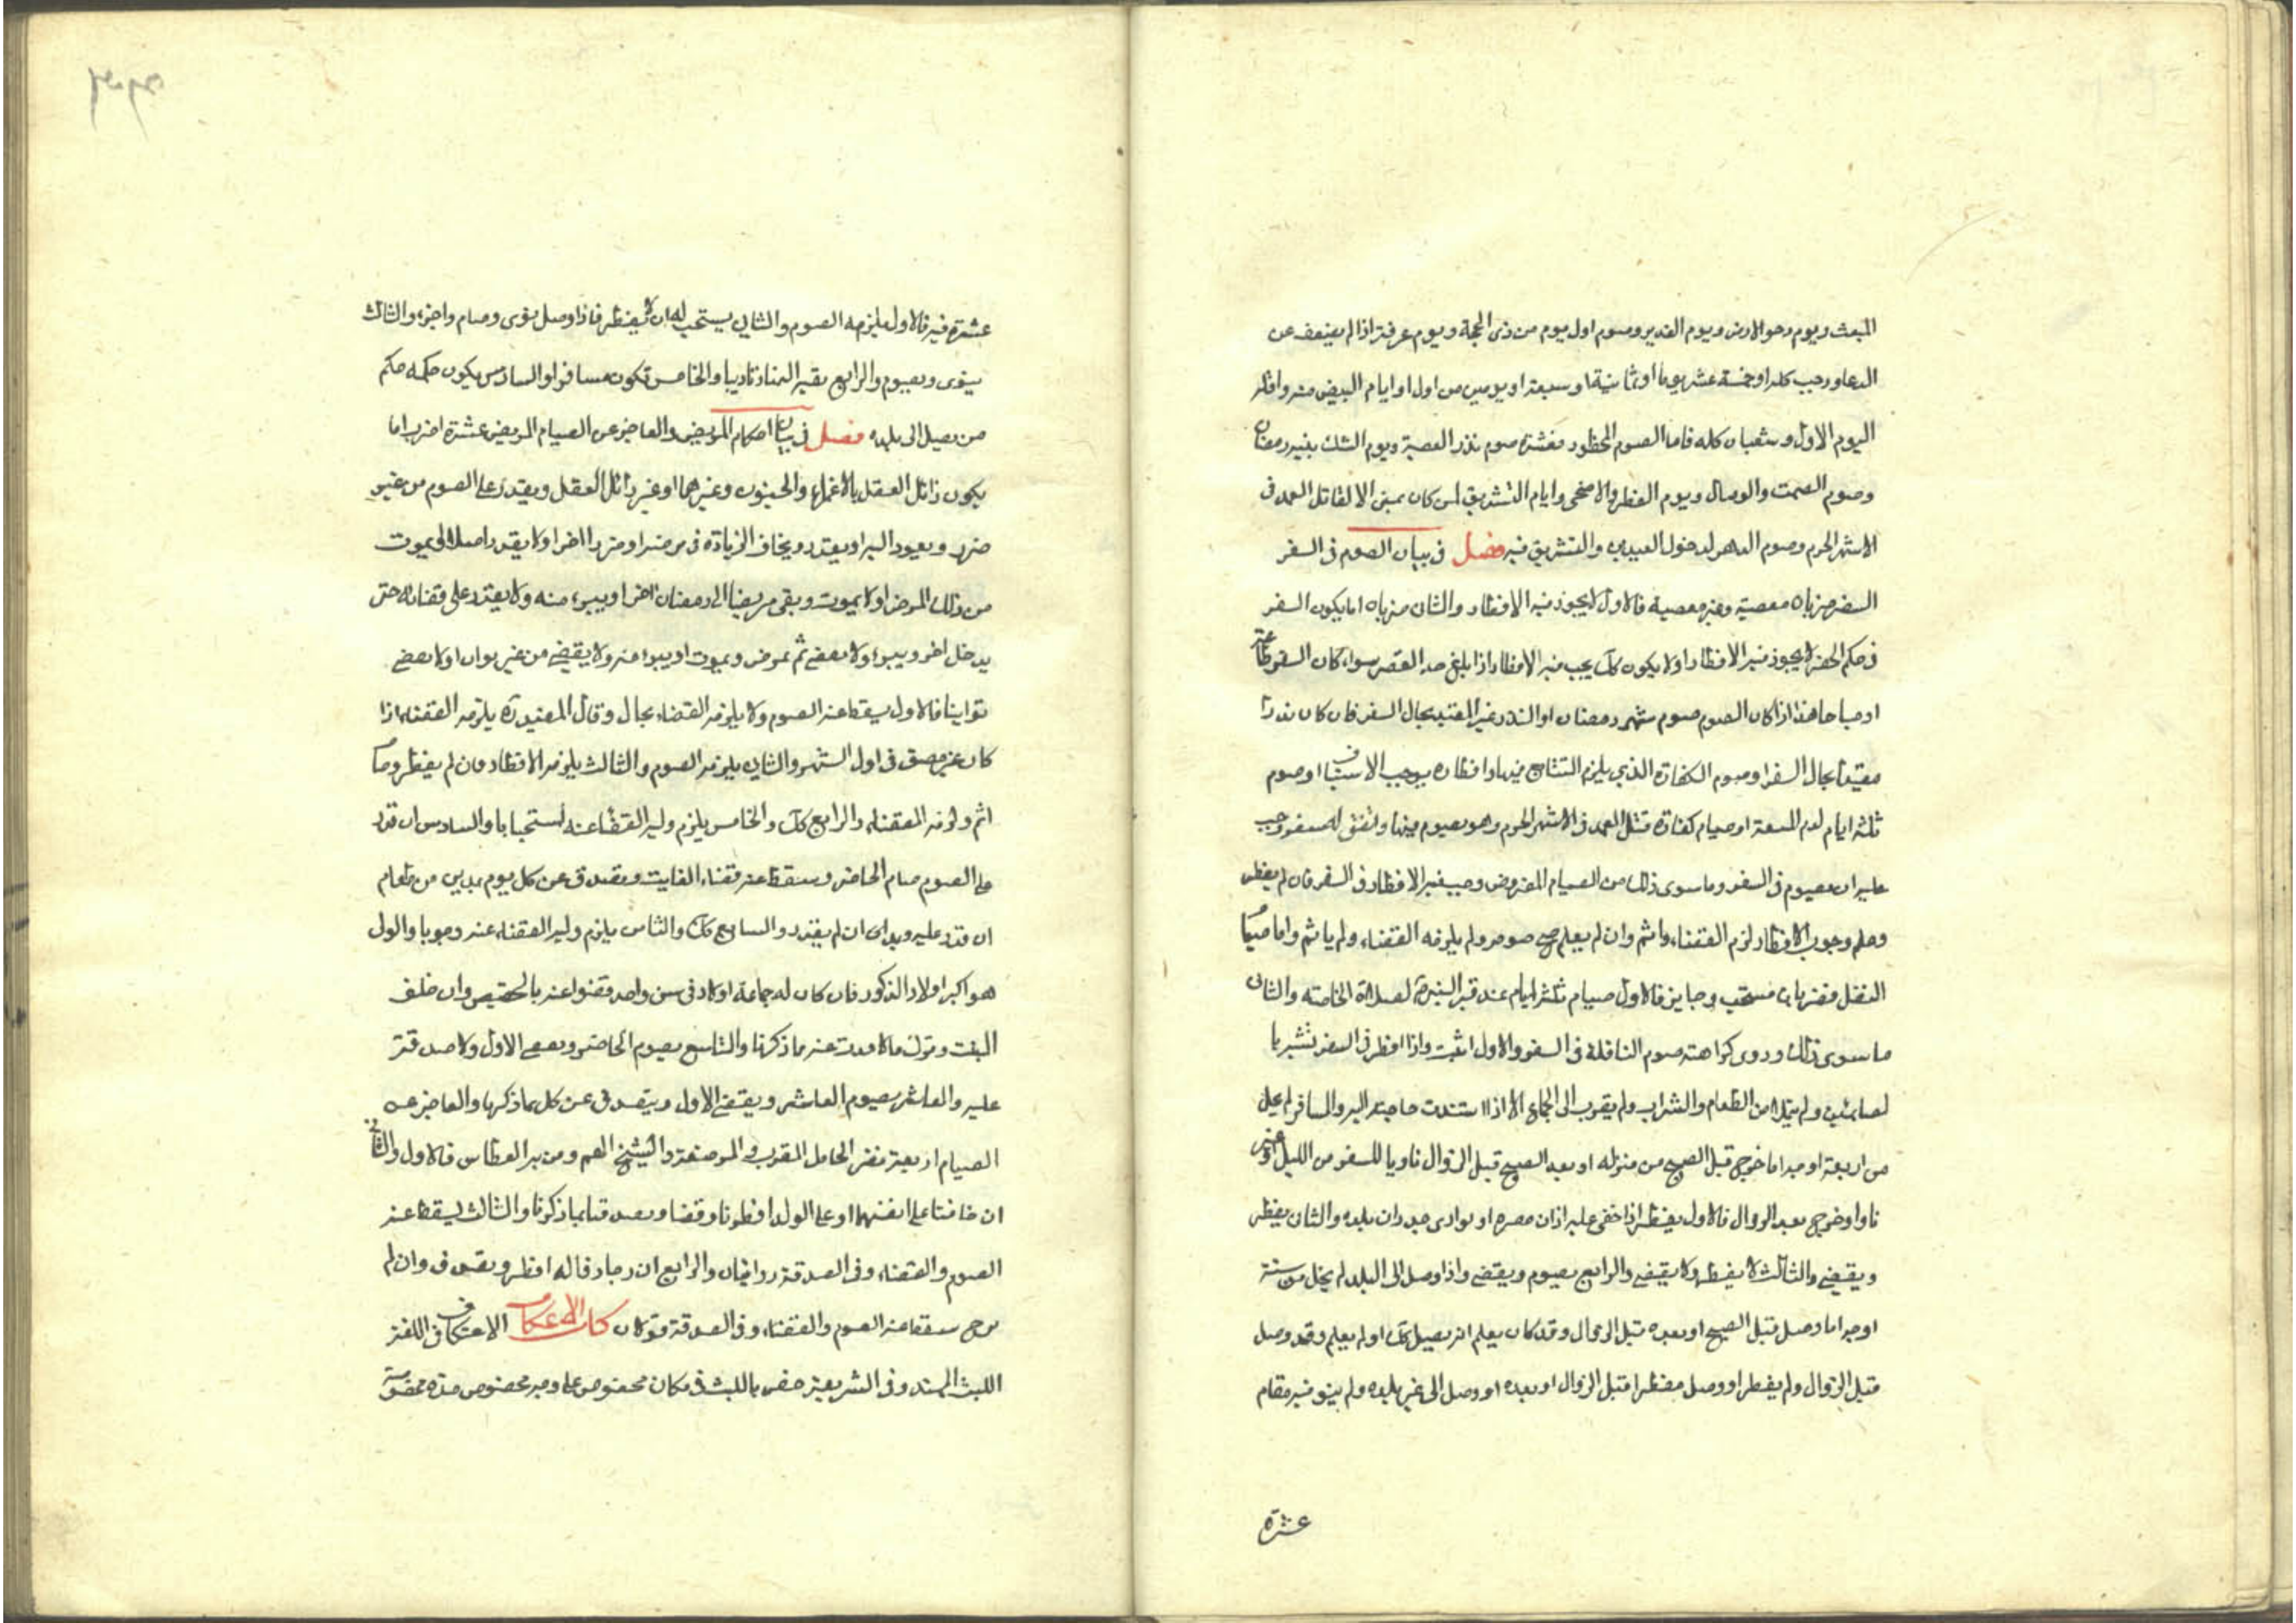 المبعث ويوم دحو الارض ويوم الغدير وصوم اول يوم من ذى الحجة ويوم عرفة اذا لم يضعف عن
الدعا ورجب كله او خمسة عشر يوما او ثمانية او سبعة او يومين من اول او ايام البيض منه واقله
اليوم الاول وشعبان كله فاما الصوم المحظور فعشرة صوم نذر المعصية ويوم الشك بنية رمضان
وصوم الصمت والوصال ويوم الفطر والاضحى وايام التشريق لمن كان بمنى الا لقاتل العمد فى
الاشهر الحرم وصوم الدهر لدخول العيدين والتشريق فيه فصل فى بيان الصوم فى السفر
السفر ضربان معصية وغير معصية فالاول لا يجوز فيه الافطار والثانى ضربان اما يكون السفر
فى حكم الحضر لا يجوز فيه الافطار او لا يكون كك يجب فيه الافطار اذا بلغ حد القصر سواء كان السفر طاعة
او مباحا هذا اذا كان الصوم صوم شهر رمضان او النذر غير المقيد بحال السفر فان كان نذرا
مقيدا بحال السفر او صوم الكفارة الذي يلزم التتابع فيها وافطاره يوجب الاستيناف او صوم
ثلثة ايام لدم المتعة او صيام كفارة قتل العمد فى الاشهر الحرم وهو يصوم فيها واتفق له سفر وجب
عليه ان يصوم فى السفر وما سوى ذلك من الصيام المفروض وجب فيه الافطار فى السفر فان لم يفطر
وعلم وجوب الافطار لزم القضاء واثم وان لم يعلم صح صومه ولم يلزمه القضاء ولم ياثم واما صيام
النفل فضربان مستحب وجايز فالاول صيام ثلثة ايام عند قبر النبى لصلاة الحاجة والثانى
ما سوى ذلك وروى كراهة صوم النافلة فى السفر والاول اثبت واذا افطر فى السفر تشبه با
لصائمين ولم يتملا من الطعام والشراب ولم يقرب الى الجماع الا اذا اشتدت حاجته اليه والمسافر لم يخل
من اربعة اوجه اما خرج قبل الصبح من منزله او بعد الصبح قبل الزوال ناويا للسفر من الليل او غير
ناو او خرج بعد الزوال فالاول يفطر اذا خفى عليه اذان مصره او توارى جدران بلده والثانى يفطر
ويقضى والثالث لا يفطر ولا يقضى والرابع يصوم ويقضى واذا وصل الى البلد لم يخل من ستة
اوجه اما وصل قبل الصبح او بعده قبل الزوال وقد كان يعلم انه يصل كك او لم يعلم وقد وصل
قبل الزوال ولم يفطر او وصل مفطرا قبل الزوال او بعده او وصل الى غير بلده ولم ينو فيه مقام
عشرة
عشرة فيه فالاول يلزمه الصوم والثانى يستحب له ان لا يفطر فاذا وصل نوى وصام واجزء والثالث
ينوى ويصوم والرابع بقية النهار تاديبا والخامس يكون مسافرا والسادس يكون حكمه حكم
من يصل الى بلده فصل فى بيان احكام المريض والعاجز عن الصيام المريض عشرة اضرب اما
يكون زائل العقل بالاغماء والجنون وغيرهما او غير زائل العقل ويقدر على الصوم من غير
ضرر ويعود اليه او يقدر ويخاف الزيادة فى مرضه او ضررا اخر او لا يقدر اصلا الى يموت
من ذلك المرض او لا يموت وبقى مريضا الى رمضان اخر او يبرء منه ولا يقدر على قضائه حتى
يدخل اخر ويبرء ولا يقضى ثم يمرض ويموت او يبرء منه ولا يقضى من غير توان او لا يقضى
توانيا فالاول يسقط عنه الصوم ولا يلزمه القضاء بحال وقال المفيد ره يلزمه القضاء اذا
كان غير مفيق فى اول الشهر والثانى يلزمه الصوم والثالث يلزمه الافطار فان لم يفطر وصام
اثم ولزمه القضاء والرابع كك والخامس يلزم وليه القضاء عنه استحبابا والسادس ان قدر
على الصوم صام الحاضر وسقط عنه قضاء الفايت وتصدق عن كل يوم بمدين من طعام
ان قدر عليه وبمد ان لم يقدر والسابع كك والثامن يلزم وليه القضاء عنه وجوبا والولى
هو اكبر اولاد الذكور فان كان له جماعة اولاد فى سن واحد قضوا عنه بالحصص وان خلف
البنت وترك مالا فديت عنه بما ذكرنا والتاسع يصوم الحاضر ويقضى الاول ولا صدقة
عليه والعاشر يصوم العاشر ويقضى الاول ويتصدق عن كل بما ذكرنا والعاجز عن
الصيام اربعة نفر الحامل المقرب والمرضعة والشيخ الهم ومن به العطاش فالاول والثانى
ان خافتا على انفسهما او على الولد افطرتا وقضتا وتصدقتا بما ذكرنا والثالث يسقط عنه
الصوم والقضاء وفى الصدقة روايتان والرابع ان رجا زواله افطر وتصدق وان لم
يرج سقط عنه الصوم والقضاء وفى الصدقة قولان كتاب الاعتكاف الاعتكاف فى اللغة
اللبث الممتد وفى الشريعة خص باللبث فى مكان مخصوص على وجه مخصوص مدة مخصوصة